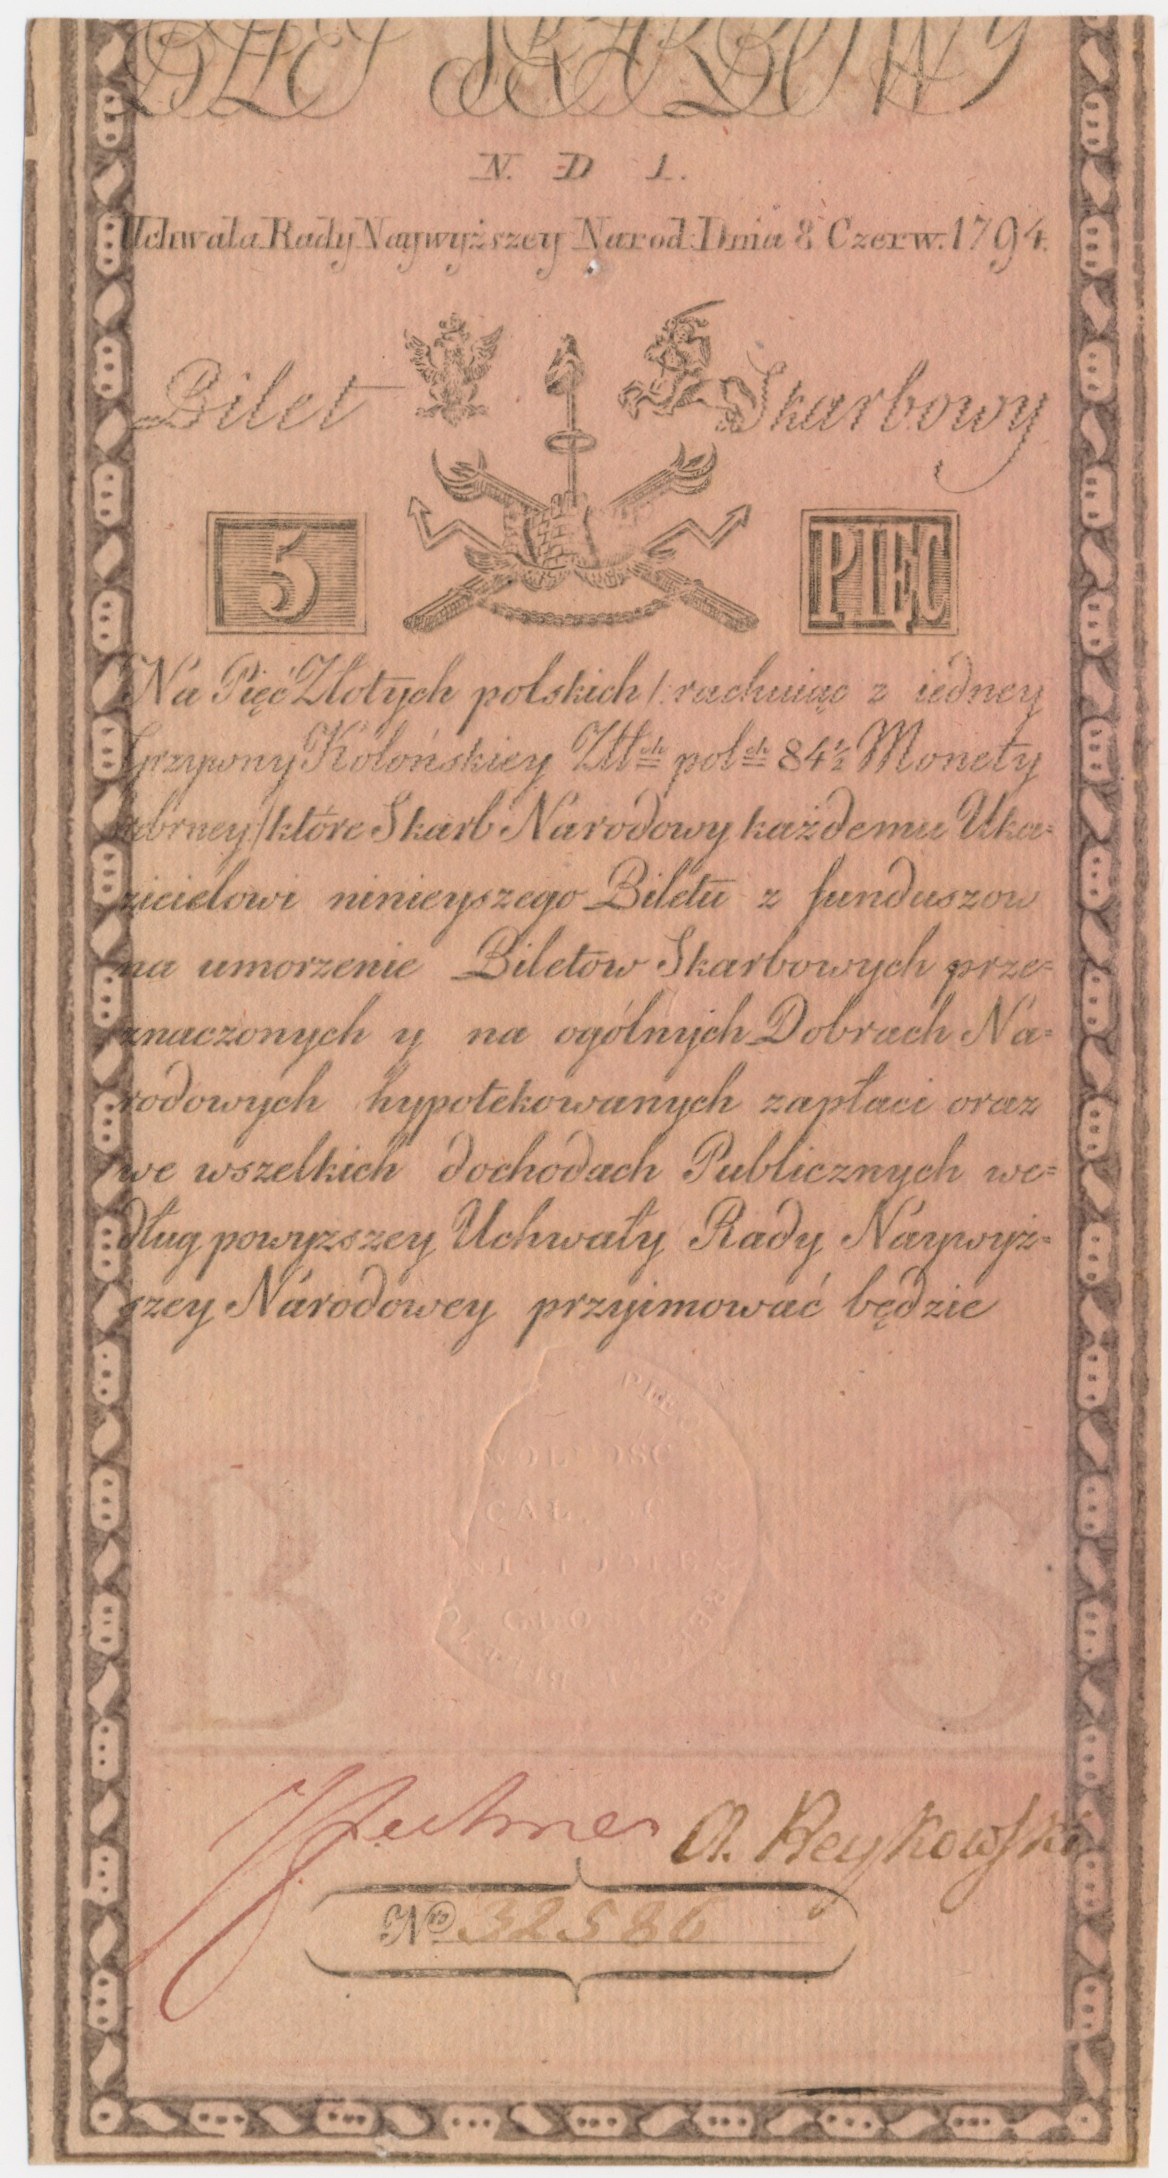 BILET SKARBOWY
N. D 1.
Uchwała Rady Naywyższey Narod: Dnia 8 Czerw. 1794.
Bilet Skarbowy
5 PIĘC
Na Pięć Złotych polskich /: rachuiąc z iedney
Grzywny Kolońskiey Złł ch pol ch 84 1/2 Monety
srebrney/ które Skarb Narodowy każdemu Uka=
zicielowi ninieyszego Biletu z funduszow
na umorzenie Biletow Skarbowych prze=
znaczonych y na ogólnych Dobrach Na=
rodowych hypotekowanych zapłaci oraz
we wszelkich dochodach Publicznych we=
dług powyższey Uchwały Rady Naywyż=
szey Narodowey przyimować będzie
WOLNOŚĆ
CAŁOŚĆ
B S
A. Reykowski
Nro 32586